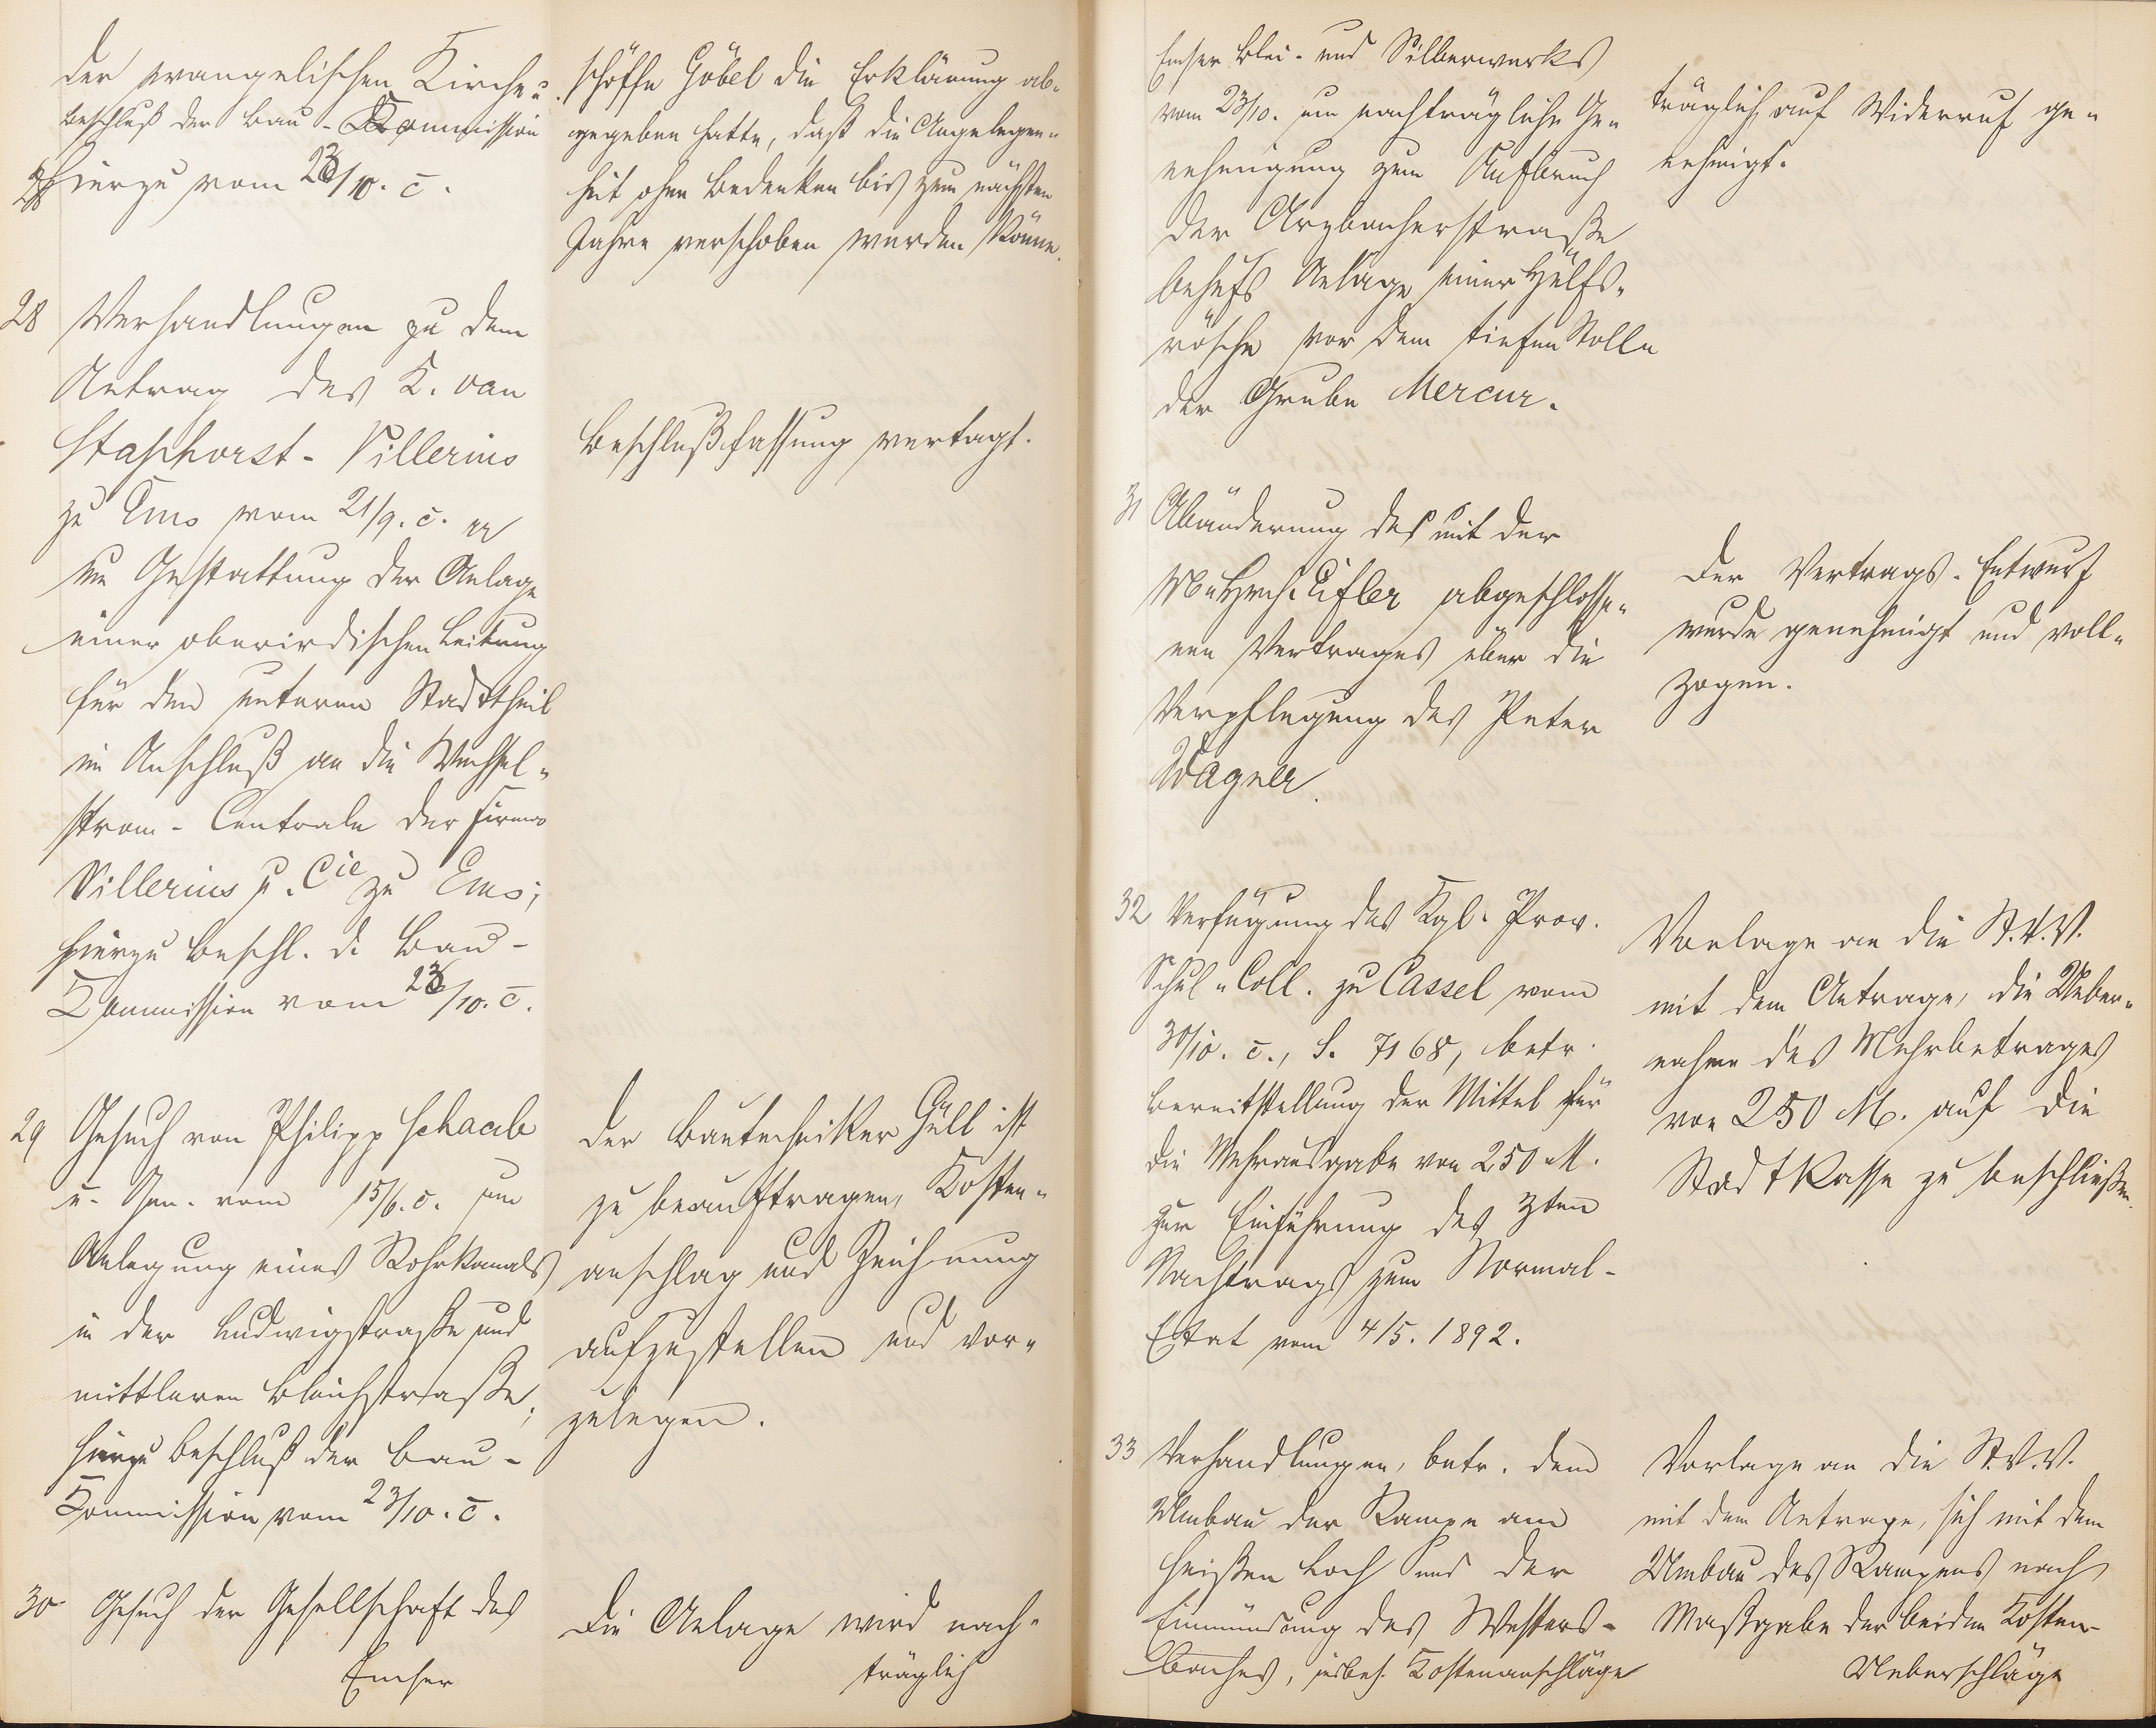 der evangelischen Kirche;
Beschluß der Bau-Kommission
hierzu vom 23/10. c.
28 Verhandlungen zu dem
Antrag des K. van
Staphorst-Villerius
zu Ems vom 21/9. c.
um Gestattung der Anlage
einer oberirdischen Leitung
für den unteren Stadttheil
im Anschluß an die Wechsel-
strom-Centrale der Firma
Villerius u. Cie zu Ems;
hierzu Beschl. d. Bau-
Kommission vom 23/10. c.
29 Gesuch von Philipp Schaab
u. Gen. vom 15/6. c. um
Anlegung eines Rohrkanals
in der Ludwigstraße und
mittleren Bleichstraße;
hierzu Beschluß der Bau-
Kommission vom 23/10. c.
30 Gesuch der Gesellschaft des
Emser
schöffe Göbel die Erklärung ab-
gegeben hatte, daß die Angelegen-
heit ohne Bedenken bis zum nächsten
Jahre verschoben werden könne.
Beschlußfassung vertagt.
Der Bautechniker Güll ist
zu beauftragen, Kosten-
anschlag und Zeichnung
aufzustellen und vor-
zulegen.
Die Anlage wird nach-
träglich
Emser Blei- und Silberwerks
vom 23/10. um nachträgliche Ge-
nehmigung zum Aufbruch
der Arzbacherstraße
behufs Anlage einer Hülfs-
rösche vor dem tiefen Stolln
der Grube Mercur.
31 Abänderung des mit der
abgeschlosse-
nen Vertrages über die
Verpflegung des Peter
Wagner.
32 Verfügung des Kgl. Prov.
Schul-Coll. zu Cassel vom
30/10. c., S. 7168, betr.
Bereitstellung der Mittel für
die Mehrausgabe von 250 M.
zur Einführung des 3ten
Nachtrags zum Normal-
Etat vom 4/5. 1892.
33 Verhandlungen, betr. den
Umbau der Rampe am
heißen Loch und der
Einmündung des Westers-
baches, insbes. Kostenanschläge
träglich auf Widerruf ge-
nehmigt.
Der Vertrags-Entwurf
wurde genehmigt und voll-
zogen.
Vorlage an die St.V.V.
mit dem Antrage, die Ueber-
nahme des Mehrbetrages
von 250 M. auf die
Stadtkasse zu beschließen.
Vorlage an die St.V.V.
mit dem Antrage, sich mit dem
Umbau des Rampens nach
Maßgabe der beiden Kosten-
Ueberschläge